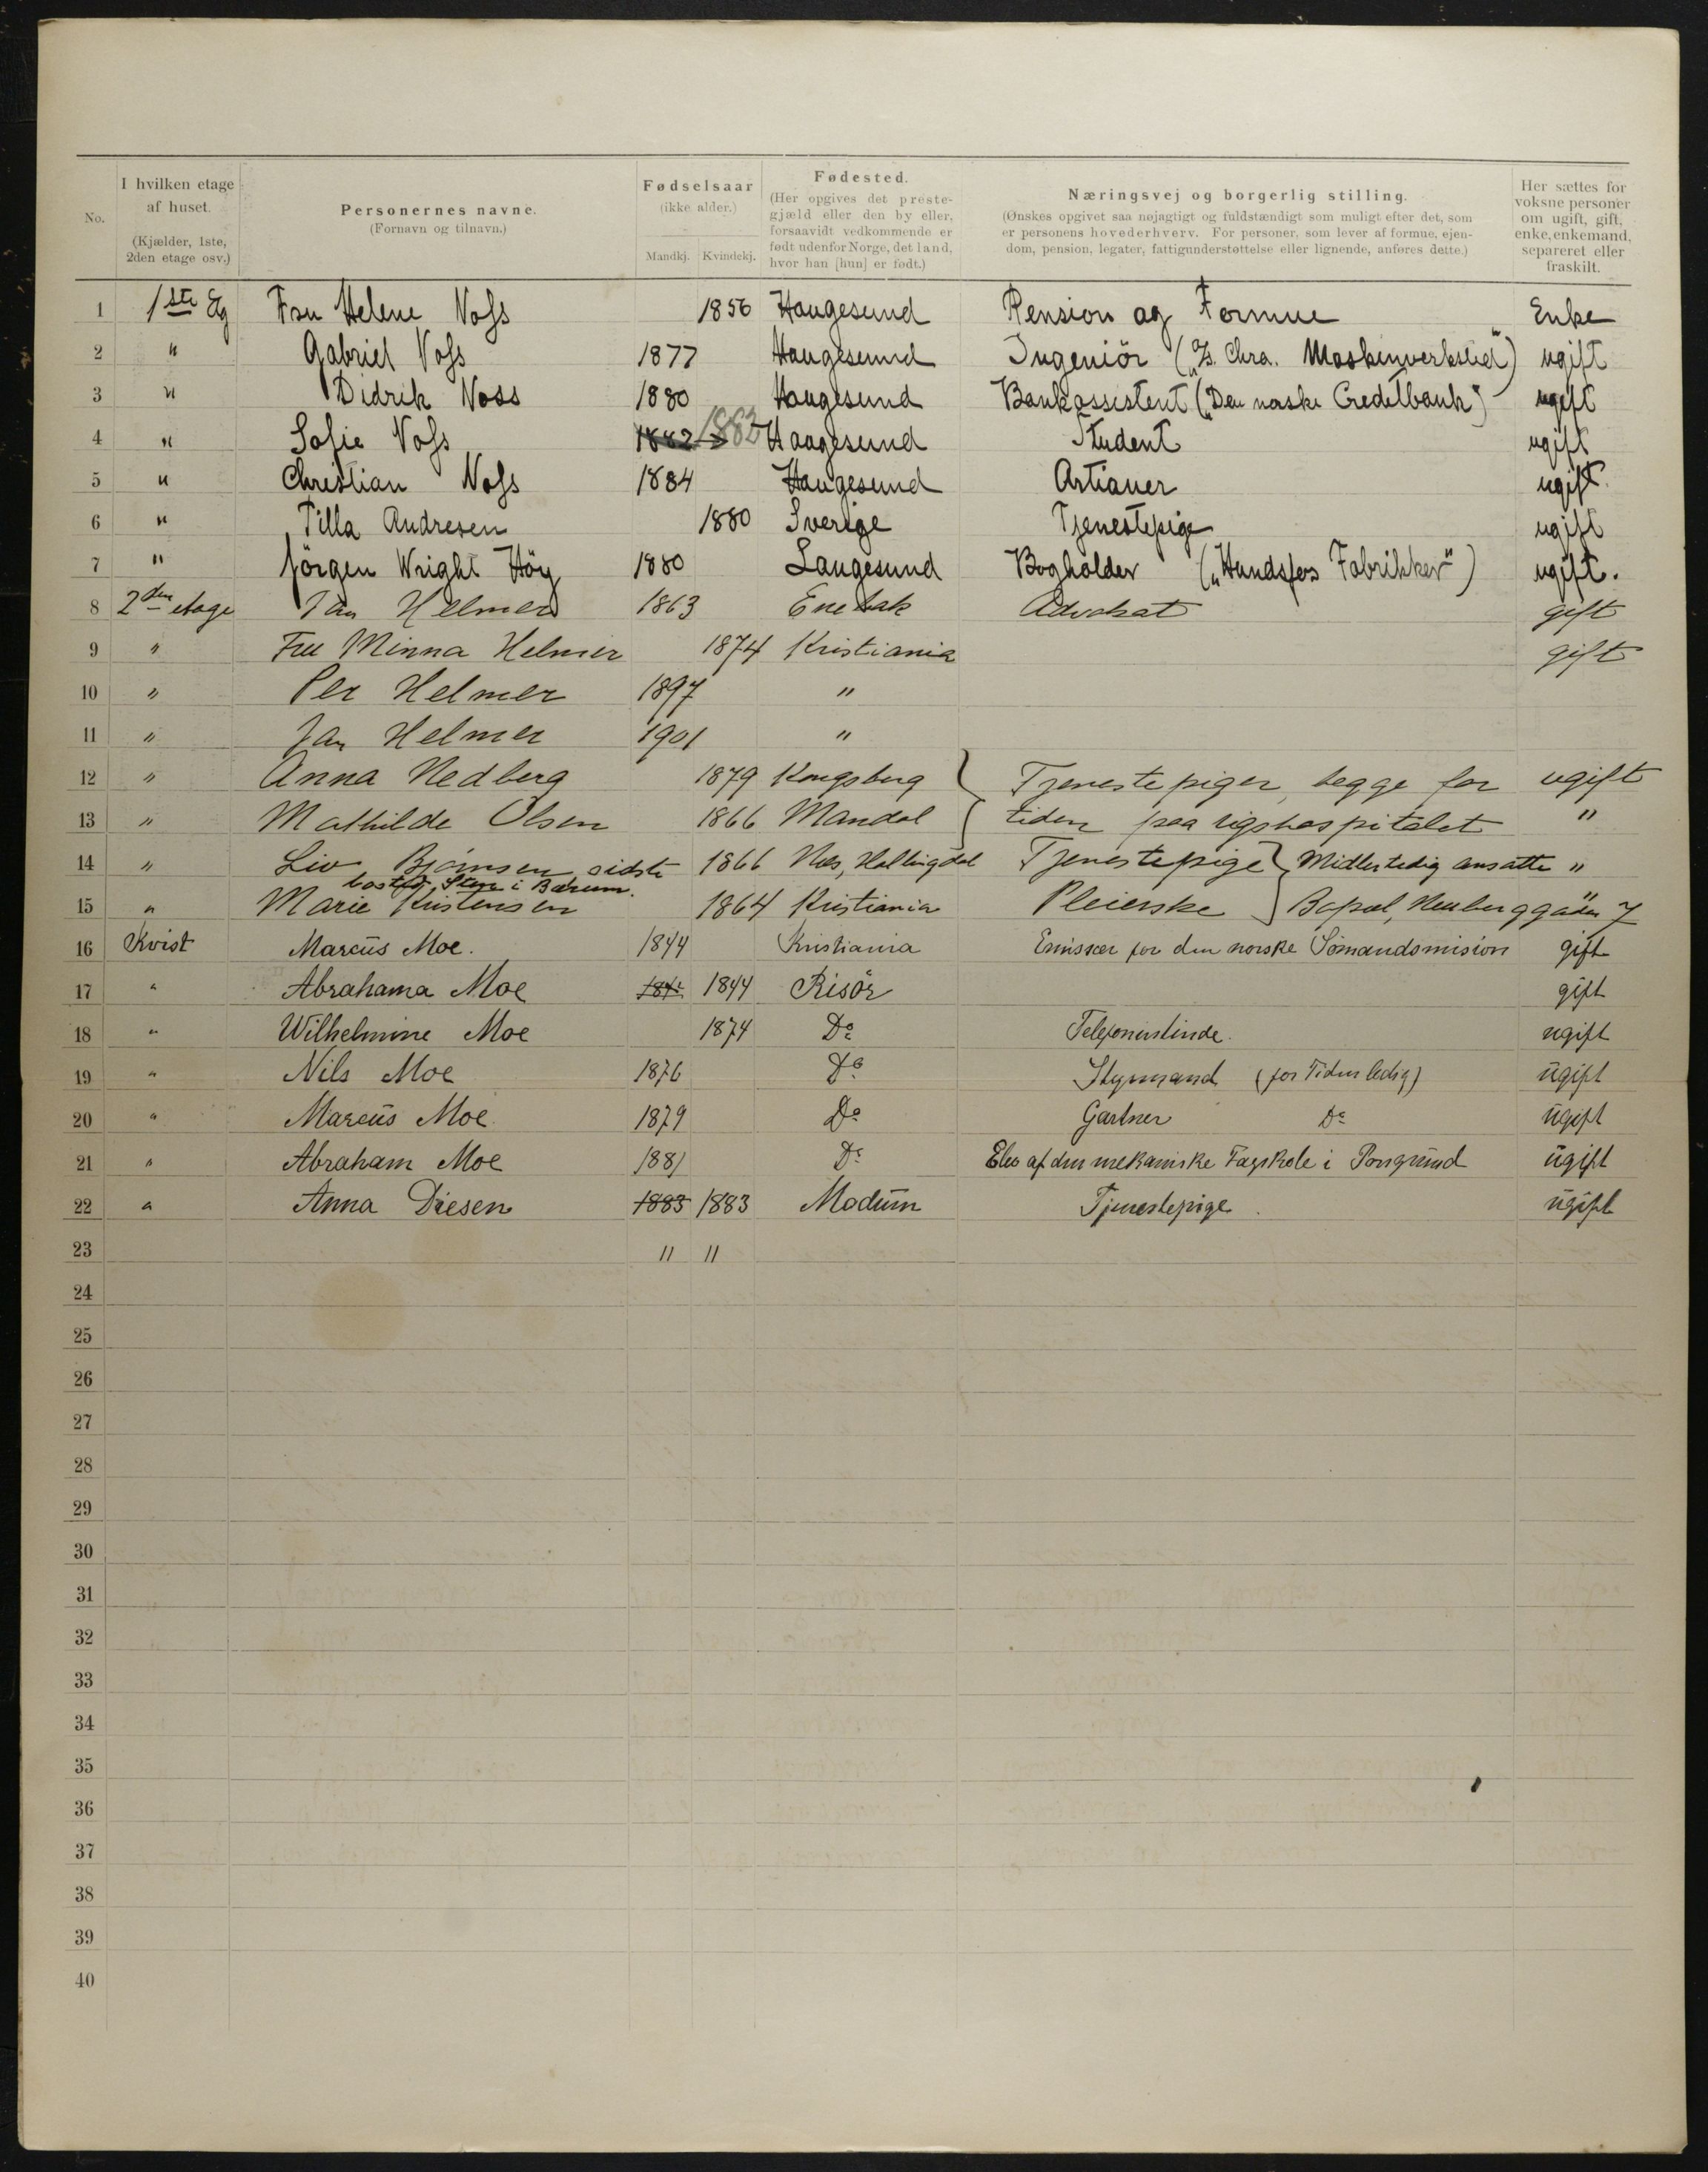 No.
I hvilken etage af huset. (Kjælder, 1ste, 2den etage osv.)
Personernes navne. (Fornavn og tilnavn.)
Fødselsaar (ikke alder.) Mandkj. Kvindekj.
Fødested. (Her opgives det prestegjæld eller den by eller, forsaavidt vedkommende er født udenfor Norge, det land, hvor han [hun] er født.)
Næringsvej og borgerlig stilling. (Ønskes opgivet saa nøjagtigt og fuldstændigt som muligt efter det, som er personens hovederhverv. For personer, som lever af formue, ejendom, pension, legater, fattigunderstøttelse eller lignende, anføres dette.)
Her sættes for voksne personer om ugift, gift, enke, enkemand, separeret eller fraskilt.
1 1ste Etg Fru Helene Vofs 1856 Haugesund Pension og Formue Enke
2 " Gabriel Vofs 1877 Haugesund Ingeniör ("Chra. Maskinverksted") ugift
3 " Didrik Voss 1880 Haugesund Bankassistent ("Den norske Creditbank") ugift
4 " Sofie Vofs 1882 1882 Haugesund Student ugift
5 " Christian Vofs 1884 Haugesund Artianer ugift.
6 " Tilla Andresen 1880 Sverige Tjenestepige ugift
7 " Jörgen Wright Höy 1880 Langesund Bogholder ("Hundsfos Fabrikker") ugift.
8 2den etage Jan Helmer 1863 Enebak Advokat gift
9 " Fru Minna Helmer 1874 Kristiania gift
10 " Per Helmer 1897 "
11 " Jan Helmer 1901 "
12 " Anna Hedberg 1879 Kongsberg } Tjenestepiger, begge for ugift
13 " Mathilde Olsen 1866 Mandal { tiden paa rigshospitalet "
14 " Liv Bjørnsen sidste 1866 Nes, Hallingdal Tjenestepige } Midlertidig ansatte "
bosted, Sten i Bærum.
15 " Marie Kristensen 1864 Kristiania Pleierske } Bopæl, Heuberggaden 7 "
16 Kvist Marcus Moe. 1844 Kristiania Emissær for den norske Sömandsmision gift
17 " Abrahama Moe 1844 Risör gift
18 " Wilhelmine Moe 1874 Do Telefonistinde. ugift
19 " Nils Moe 1876 Do Styrmand (for Tiden ledig) ugift
20 " Marcus Moe 1879 Do Gartner Do ugift
21 " Abraham Moe 1881 Do Elev af den mekaniske Fagskole i Porsgrund ugift
22 " Anna Diesen 1883 1883 Modum Tjenestepige ugift
23 " "
24
25
26
27
28
29
30
31
32
33
34
35
36
37
38
39
40